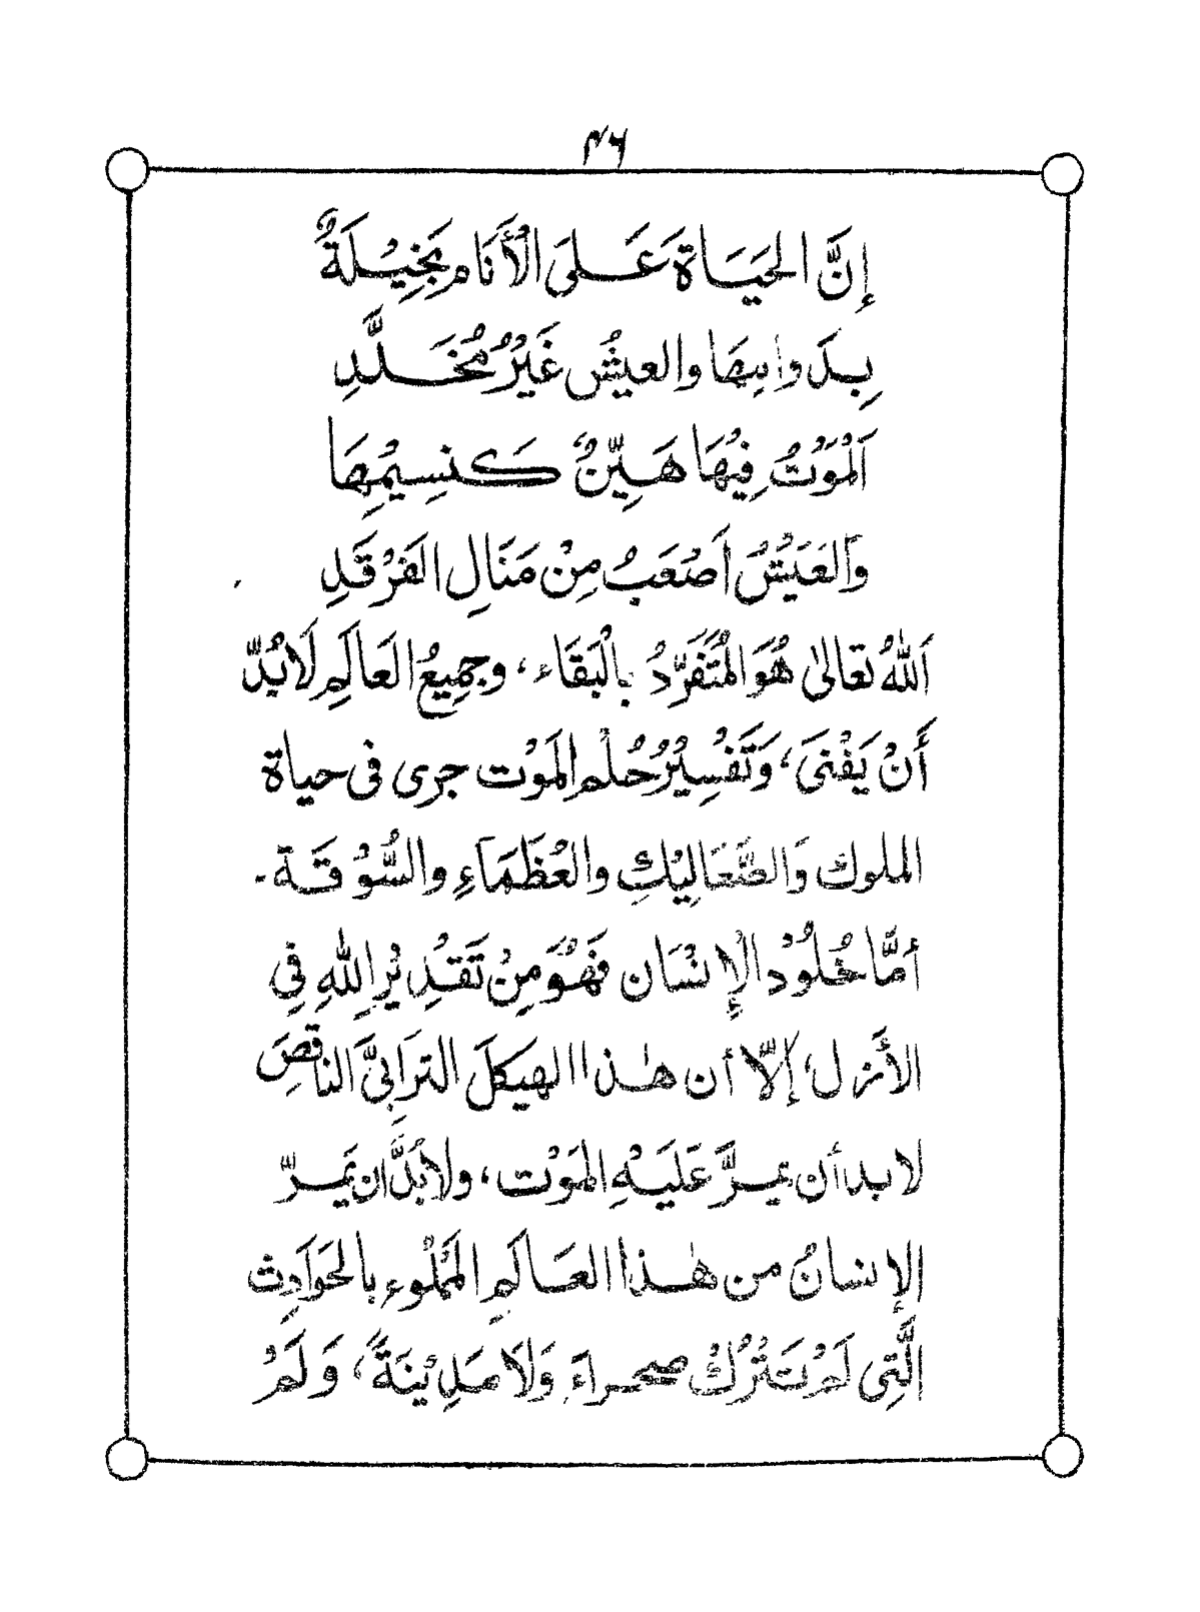 ٤٦
إِنَّ الحَيَاةَ عَلىَ الْأَنَامِ بَخِيْلَةٌ
بِدَوامِهَا والعيشُ غَيْرُ مُخَلَّدِ
اَلْمَوْتُ فِيْهَا هَيِّنٌ كَنسِيْمِهَا
وَالعَيْشُ اَصْعَبُ مِنْ مَنَالِ الفَرْقَدِ
اَللهُ تعالىٰ هُوَ المُتَفَرِّدُ بِالْبَقَاء، وجمِيعُ العَالَمِ لَابُدَّ
أَنْ يَفْنَى، وَتَفْسِيْرُ حُلْمِ المَوْت جرى فى حياة
الملوك وَالصَّعَالِيْكِ والعُظَمَاءِ والسُّوْقَة.
أمَّا خُلُوْدُ الْإِنْسَان فَهُوَ مِنْ تَقْدِيْرِ اللهِ فِي
الأَزل، إلّا أن هٰذا الهيكلَ الترَابىَّ الناقصَ
لابد أن يمرَّ عَلَيْهِ المَوْت، ولابُدَّ ان يَمرّ
الإنسانُ من هٰذا العَالَمِ المَمْلُوءِ بالحَوَادِث
الَّتِى لَمْ تَتْرُكْ صحراءَ وَلَا مَدِيْنَةً، وَلَمْ